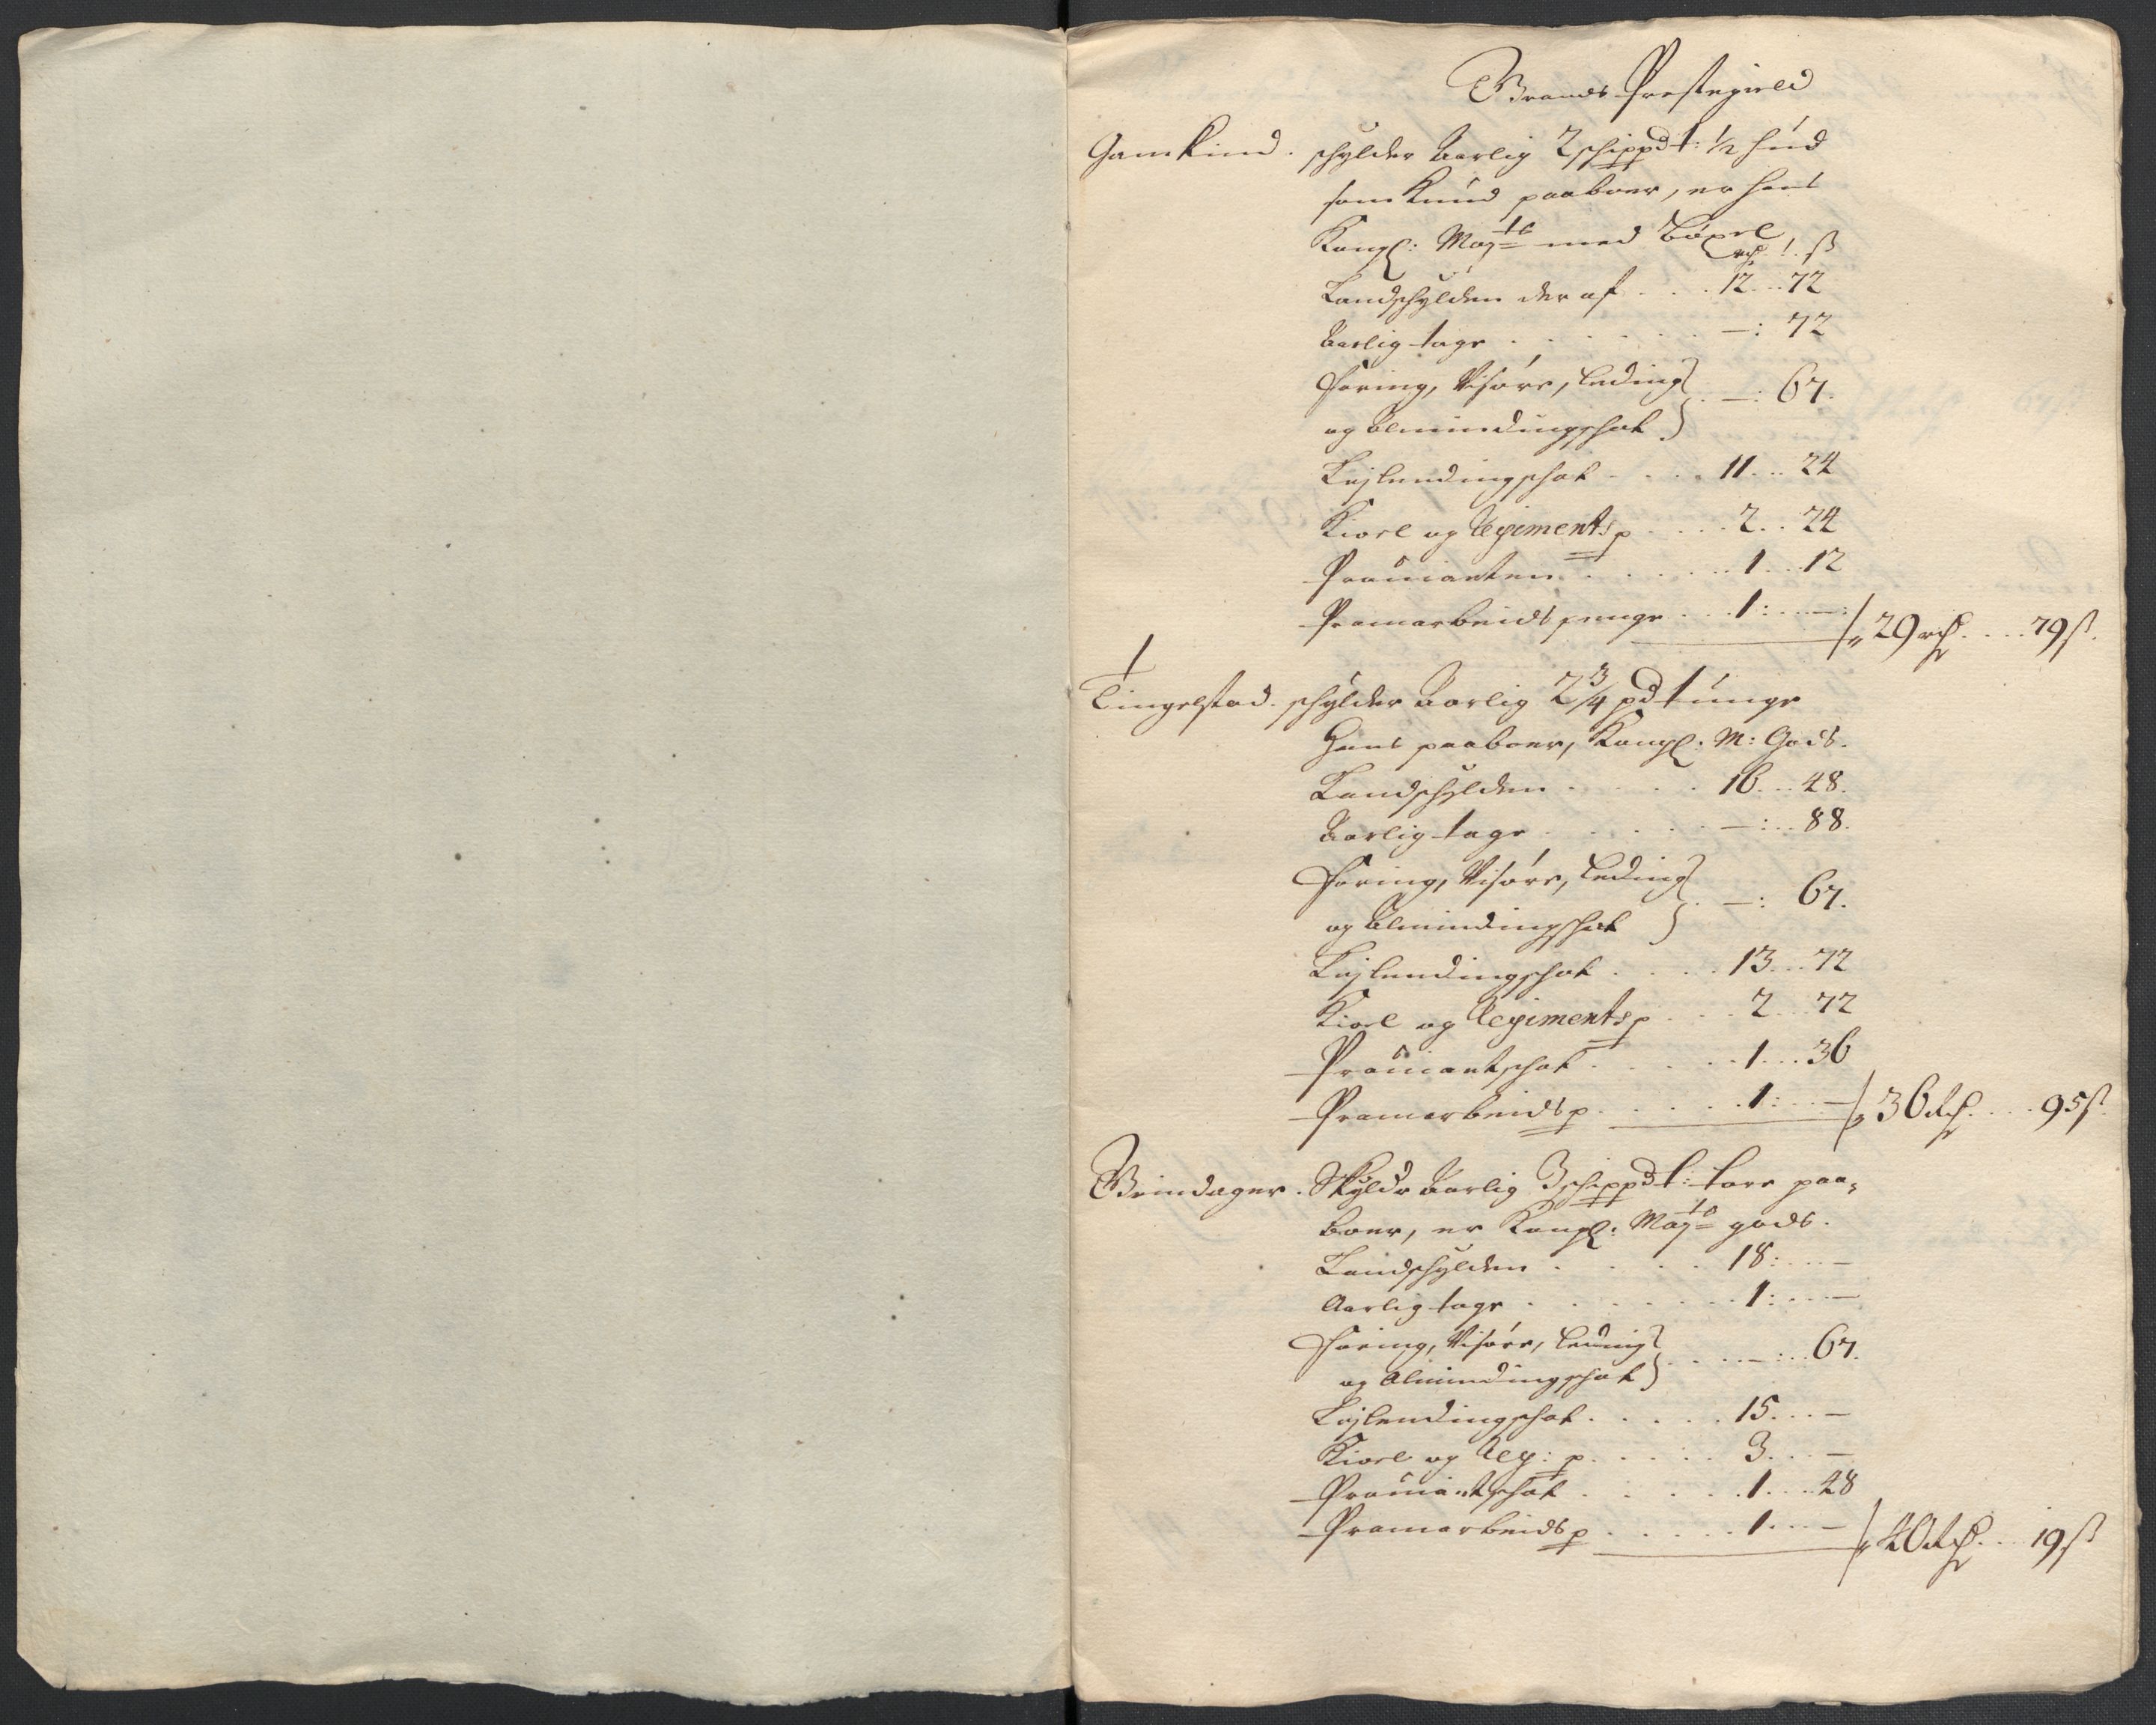 Brands Prestegield
Gamkind. schylder Aarlig 2 schippd t: 1/2 hud
som Knud paaboer, er hans
Kongl: Mayts med böxel
rd. ß
Landschylden der af . . . 12 . . 72
Aarlig tage . . . . . . —: 72
Foring, Visöre, Leding
og Almindingschat } . —: 67.
Lejlendingschat . . . . 11 . . 24
Kiorl og Regimentsp . . . . 2 . . 24
Provianten . . . . . . 1 . . 12
Pramarbeids penge . . . 1: . . —: / 29 rd. . . . 79 ß.
Tingelstad. schylder Aarlig 2 3/4 pd tunge
Hans paaboer, Kongl: M: Gods.
Landschylden . . . . 16 . . . 48.
Aarlig tage . . . . . . —: . . 88.
Foring, Visöre, Leding
og Almindingschat } . —: 67.
Lejlendingschat . . . . 13 . . . 72
Kiorl og Regimentsp . . . 2 . . 72
Proviantschat . . . . . 1 . . . 36
Pramarbeidsp . . . . . 1: . . — / 36 Rd. . . . 95 ß.
Brindager. Skylder Aarlig 3 schippd t: Tore paa-
boer, er Kongl: Mayts gods.
Landschylden . . . . . 18: . . —
Aarlig tage . . . . . . . 1: . . —
Foring, Visöre, Leding
og Almindingschat } . . . —: . . 67.
Lejlendingschat . . . . . 15. . . —
Kiorl og Reg: p . . . . . 3. . . —
Proviantschat . . . . . 1 . . . 48
Pramarbeidsp . . . . . 1 . . . — / 40 Rd. . . 19 ß